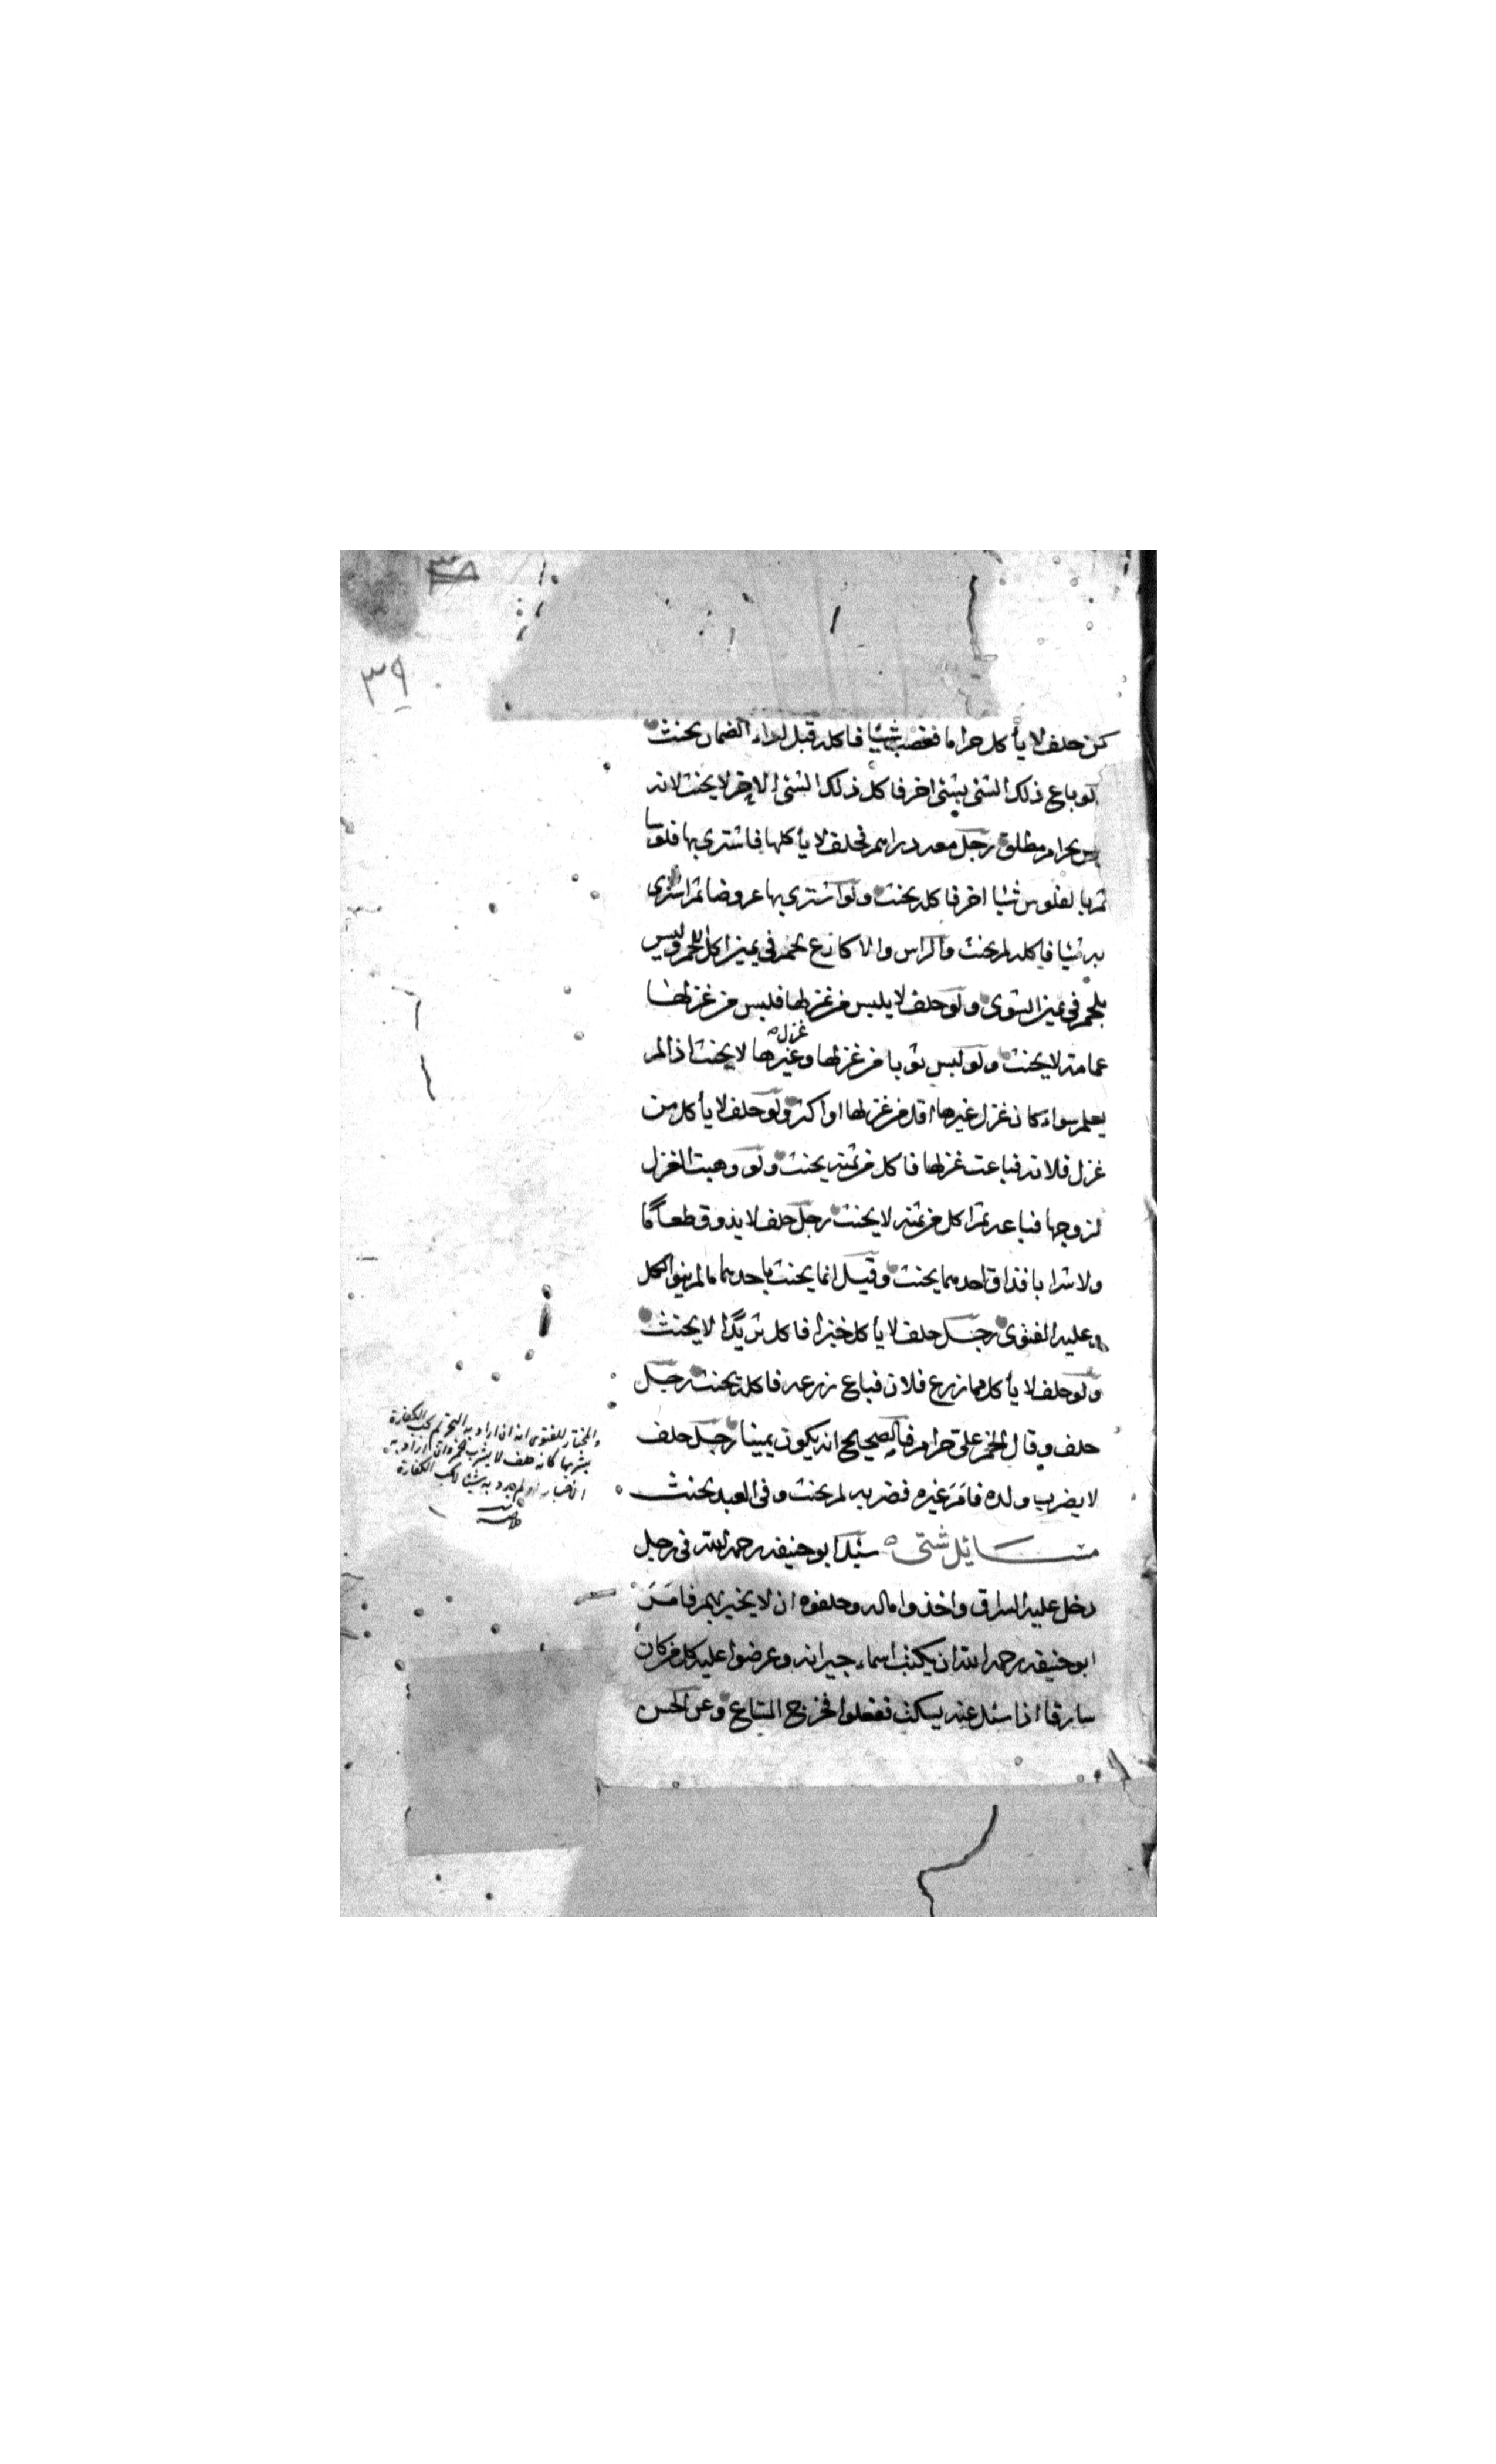 ٣٩
كمن حلف لا يأكل حراما فغصب شيئا فاكله قبل اداء الضمان يحنث
لو باع ذلك الشئ بشئ اخر فاكل ذلك الشئ الاخر لا يحنث لانه
ليس بحرام مطلق رجل معه دراهم فحلف لا يأكلها فاشترى بها فلوسا
ثم بالفلوس شيئا اخر فاكله يحنث ولو اشترى بها عروضا ثم اشترى
به شيئا فاكله لم يحنث والراس والاكارع لحم في يمين اكل اللحم وليس
بلحم في يمين الشوى ولو حلف لا يلبس من غزلها فلبس من غزلها
عمامة لا يحنث ولو لبس ثوبا من غزلها وغزل غيرها لا يحنث اذا لم
يعلم سواء كان غزل غيرها اقل من غزلها او اكثر ولو حلف لا يأكل من
غزل فلانه فباعت غزلها فاكل من ثمنه يحنث ولو وهبت الغزل
لزوجها فباعه ثم اكل من ثمنه لا يحنث رجل حلف لا يذوق طعاما
ولا شرابا فذاق احدهما يحنث وقيل انما يحنث باحدهما ما لم ينو الكل
وعليه الفتوى رجل حلف لا يأكل خبزا فاكل ثريدا لا يحنث
ولو حلف لا يأكل مما زرع فلان فباع زرعه فاكله يحنث رجل
حلف وقال الخمر على حرام فالصحيح انه يكون يمينا رجل حلف
لا يضرب ولده فامر غيره فضربه لم يحنث وفي العبد يحنث
مسائل شتى سئل ابو حنيفه رحمه الله في رجل
دخل عليه السراق واخذوا ماله وحلفوه ان لا يخبر بهم فامر
ابو حنيفه رحمه الله ان يكتب اسماء جيرانه وعرضوا عليه كل من كان
سارقا اذا سئل عنه يسكت ففعلوا فخرج المتاع وعن الحسن
والمختار للفتوى انه ان اراد به التحريم يجب الكفارة
بشربها كانه حلف لا يشرب خمرا وان اراد به
الاخبار او لم يرد به شيئا لا يجب الكفارة